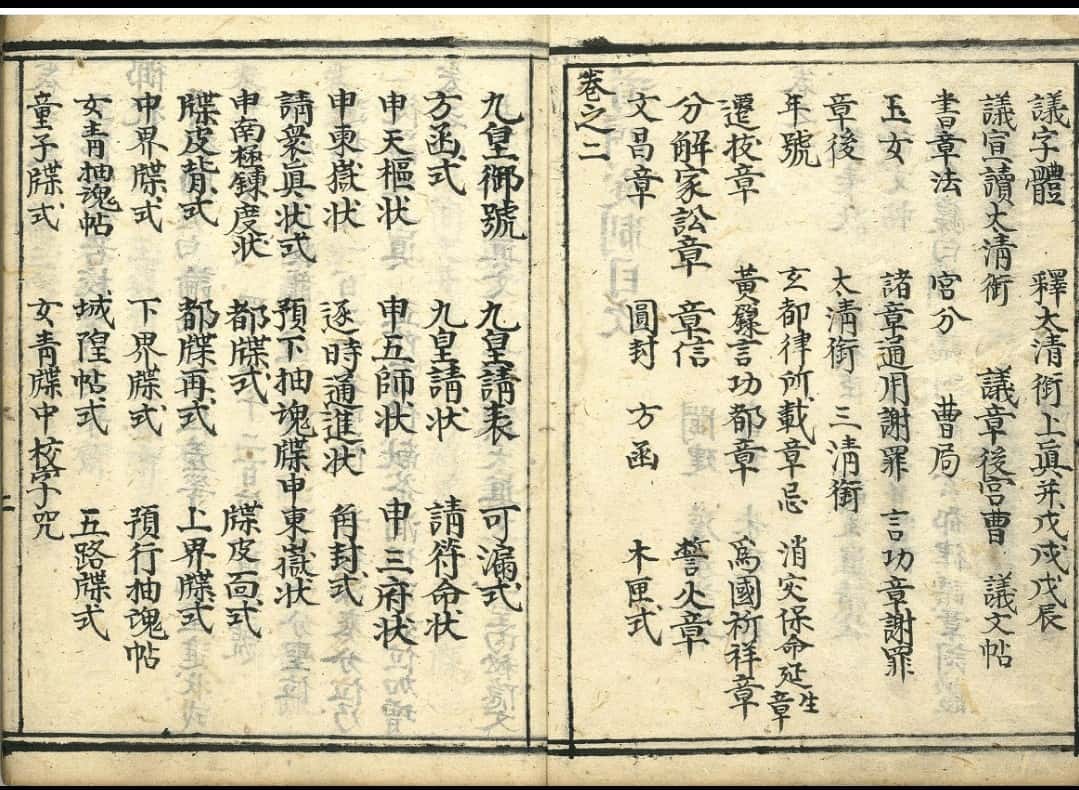 議字體 釋太清銜上真并戊戌戊辰
議宣讀太清銜 議章後宮曹 議文帖
書章法 宮分 曹局
玉女 諸章通用謝罪 言功章謝罪
章後 太清銜 三清銜
年號 玄都律所載章忌 消灾保命延生章
遷拔章 黃籙言功都章 為國祈祥章
分解家訟章 章信 誓火章
文昌章 圓封 方函 木匣式
卷之二
九皇御號 九皇請表 可漏式
方函式 九皇請状 請符命状
申天樞状 申五師状 申三府状
申東嶽状 逐時通進状 角封式
請衆真状式 預下抽魂牒申東嶽状
申南極鍊度状 都牒式 牒皮面式
牒皮背式 都牒再式 上界牒式
中界牒式 下界牒式 預行抽魂帖
女青抽魂帖 城隍帖式 五路牒式
童子牒式 女青牒中校字咒
二